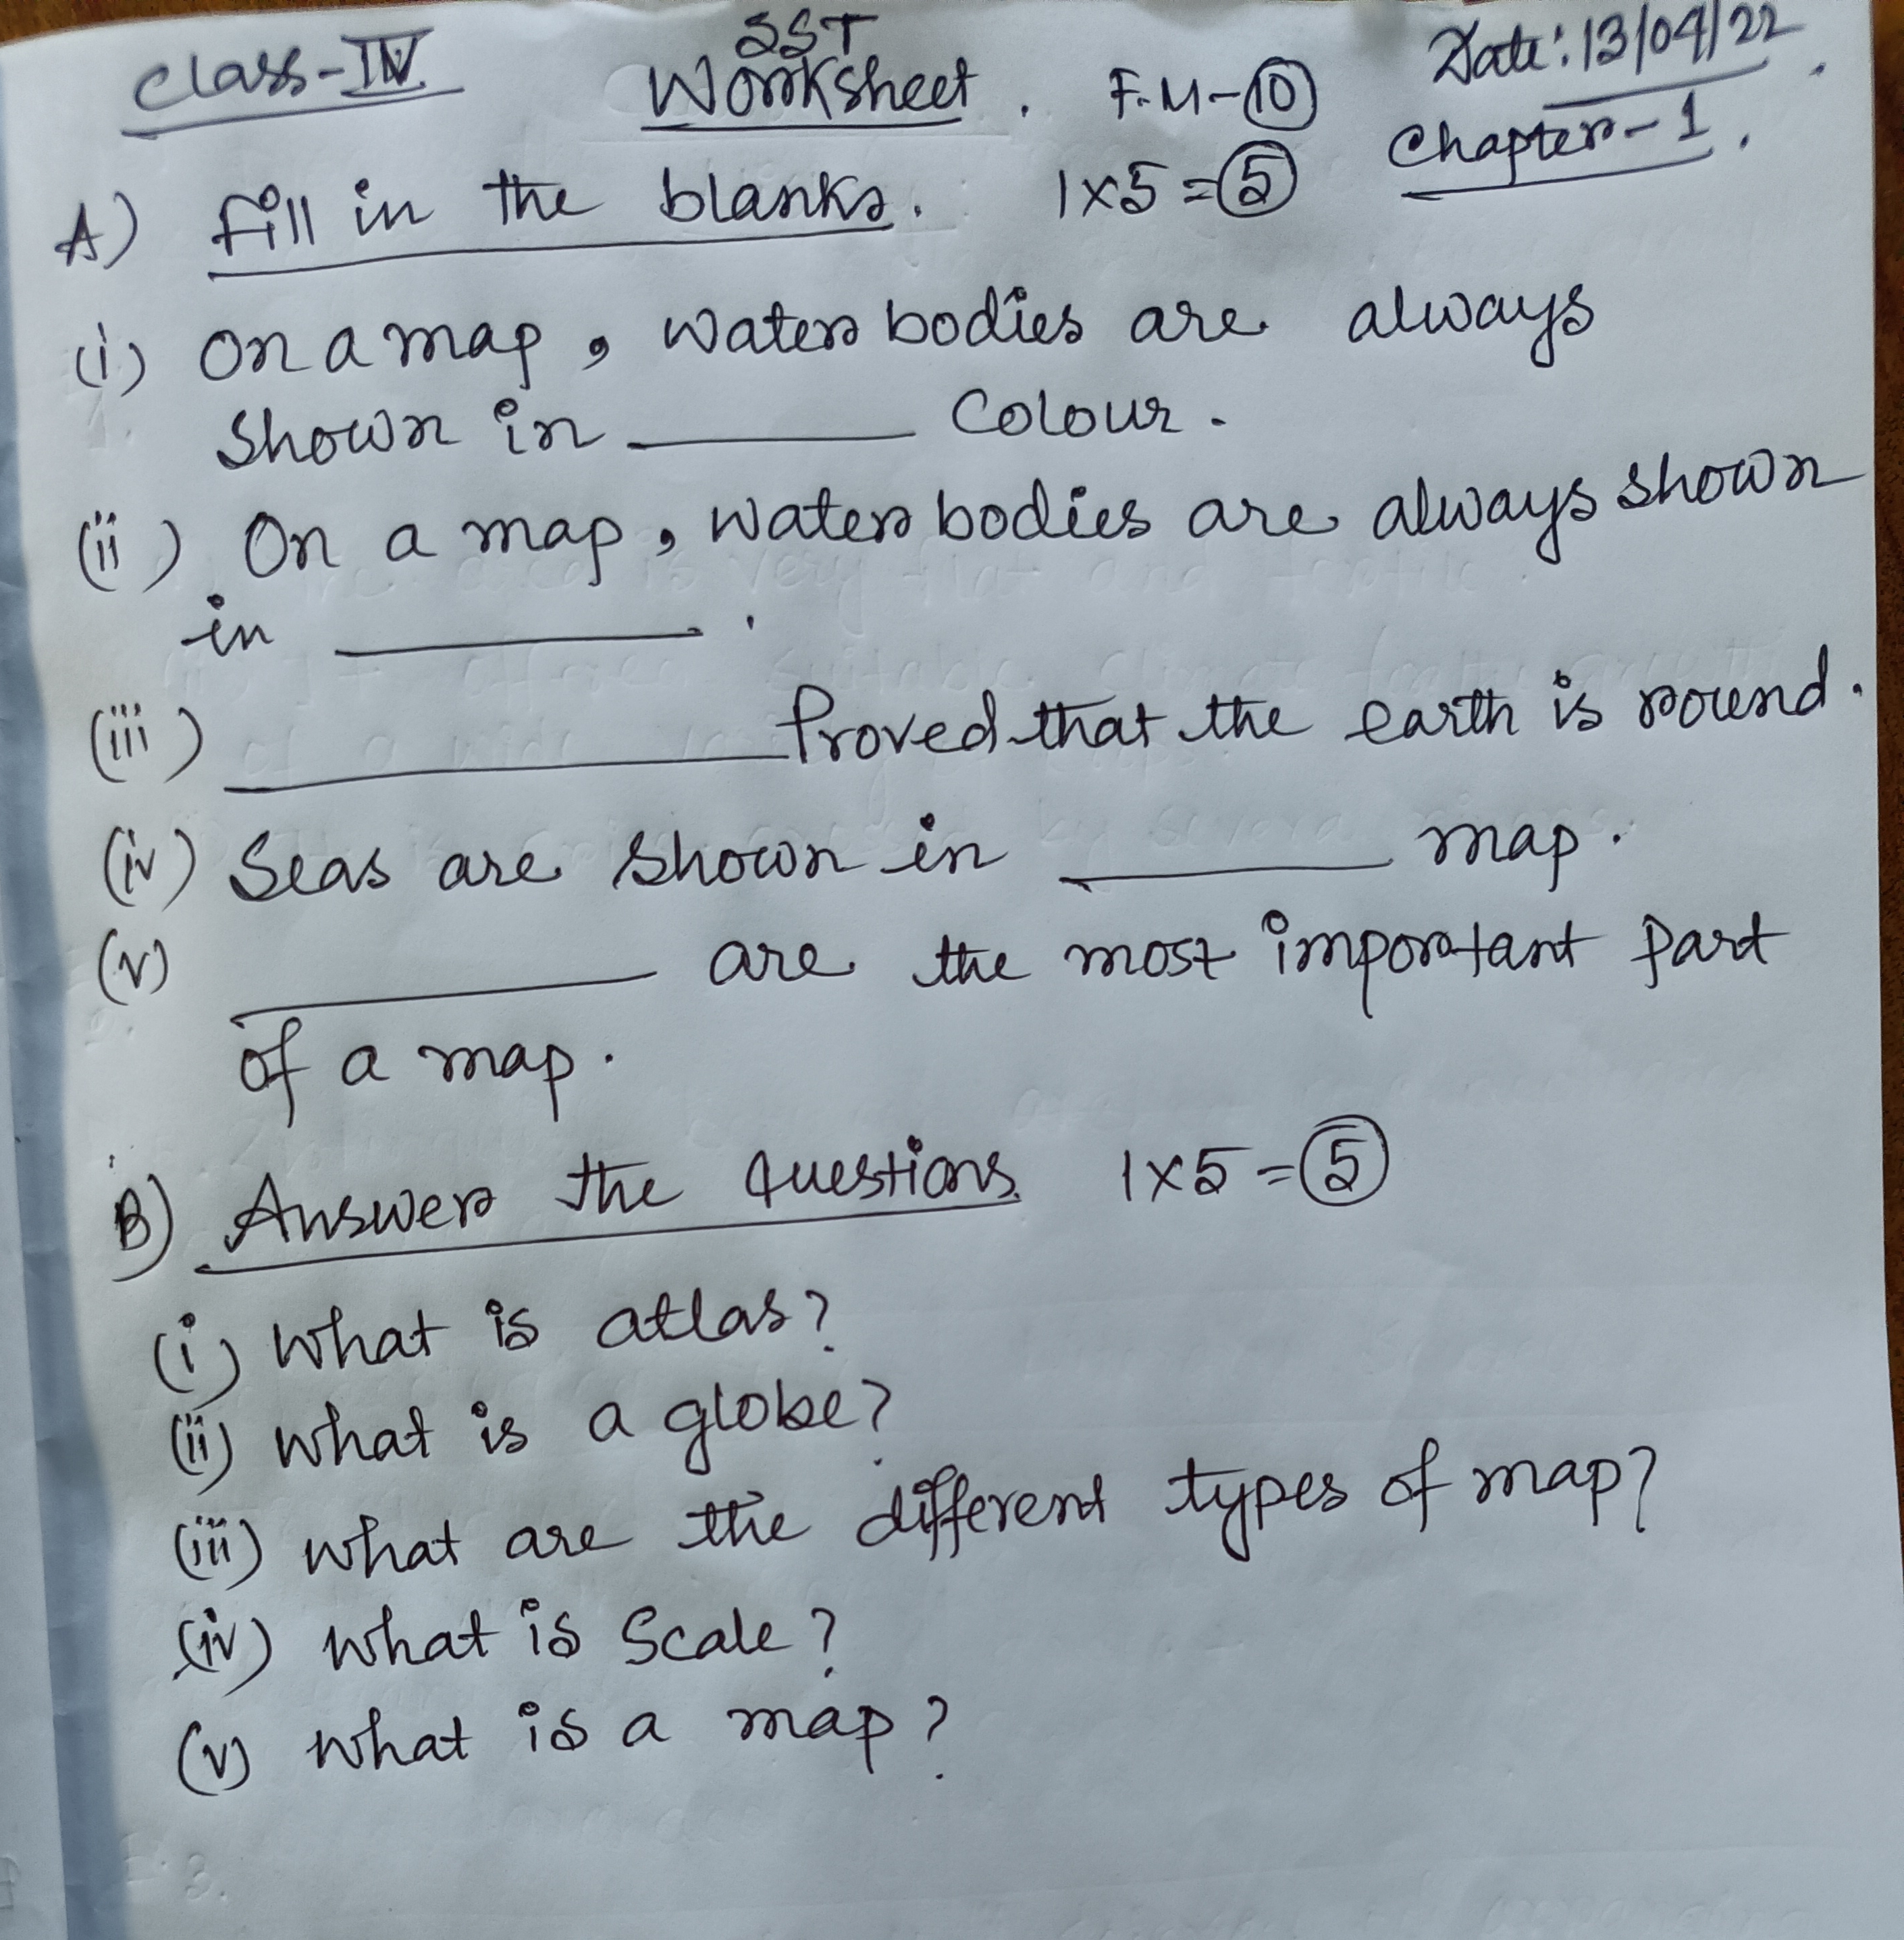 Class-IV SST Date: 13/04/22
Worksheet. F.M-10 Chapter-1.
A) Fill in the blanks. 1x5=5
(i) On a map, water bodies are always
shown in ______ Colour.
(ii) On a map, water bodies are always shown
in ______.
(iii) ______ Proved that the earth is round.
(iv) Seas are shown in ______ map.
(v) ______ are the most important part
of a map.
B) Answer the questions. 1x5=5
(i) What is atlas?
(ii) What is a globe?
(iii) What are the different types of map?
(iv) What is Scale?
(v) What is a map?